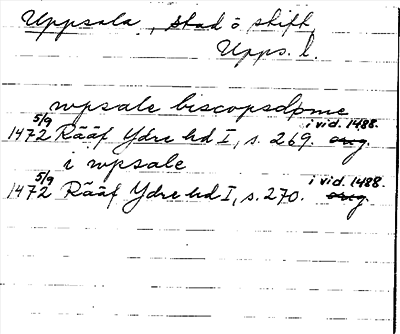 Uppsala, stad o stift
Upps. l.
wpsale biscopsdøme
5/9 i vid. 1488.
1472 Rääf Ydre hd I, s. 269. orig.
i wpsale
5/9 i vid. 1488.
1472 Rääf Ydre hd I, s. 270. orig.